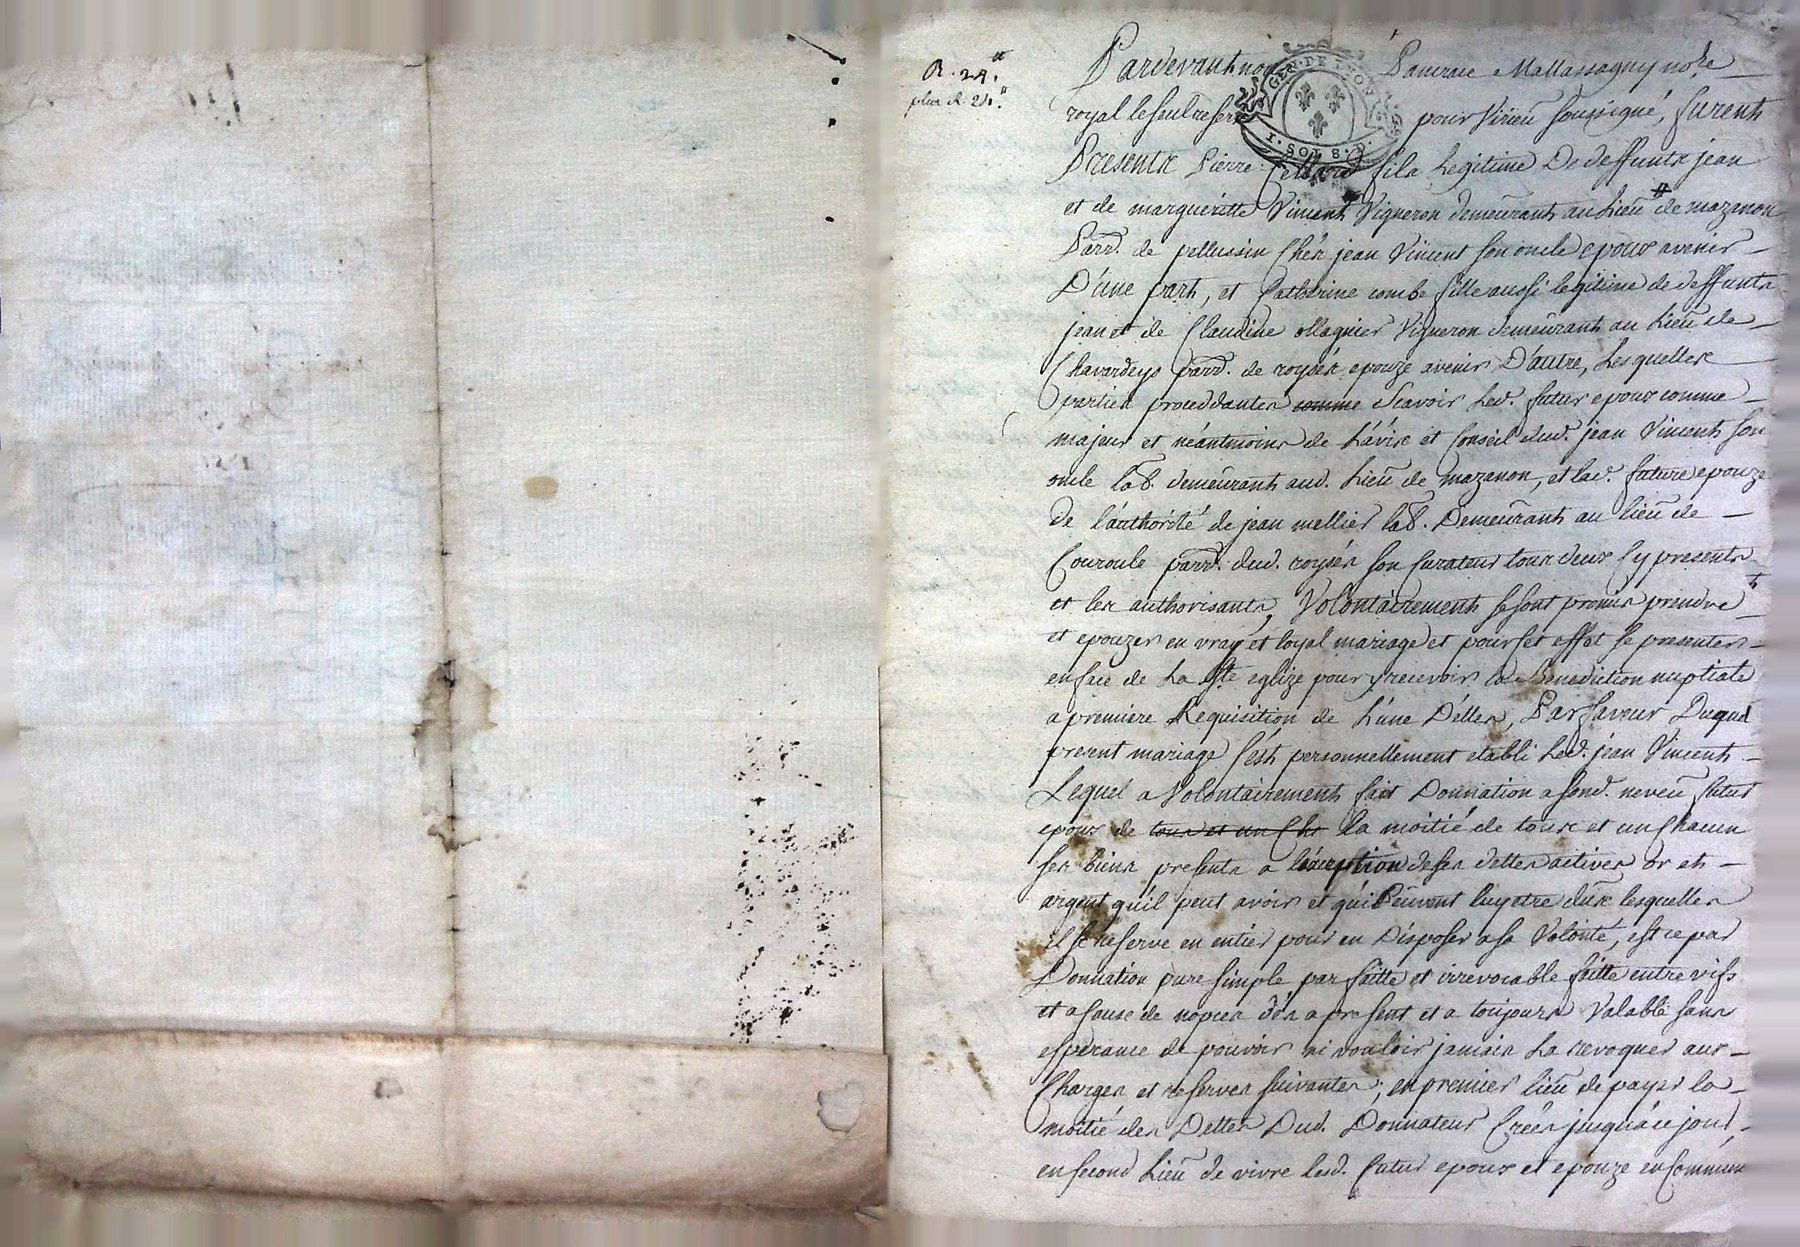 R. 24.#
plus R. 24.#
Pardevant nou Pancrace Mallassagny no.re
royal le seul reser pour Virieu soussigné, furent
GEN. DE LYON
I. SOL 8. D.
Presents Pierre fils Legitime De deffunts jean
et de margueritte Vincent Vigneron demeurant au Lieu de mazenon
Parr. de pellussin Chés jean Vincent son oncle epoux avenir
D'une part, et Catherine combe fille aussi legitime de deffunts
jean et de Claudine ollagnier Vigneron demeurant au Lieu de
Chavardeys parr. de roysén epouze avenir D'autre, Lesquelles
parties proceddantes comme Scavoir Led. futur epoux comme
majeur et néantmoins de L'avis et Conseil dud. jean Vincent son
oncle lab. demeurant aud. Lieu de mazenon, et lad. future epouze
de l'authorité de jean mellier lab. Demeurant au lieu de
Couroule parr. dud. roysén son Curateur tous deux Cy presents
et les authorisants, Volontairement se sont promis prendre
et epouzer en vray et loyal mariage et pour set effet se presenter
en face de La Ste eglize pour y recevoir la Benediction nuptiale
a premiere Requisition de L'une D'elles, Par faveur Duquel
present mariage s'est personnellement etabli Led. jean Vincent
Lequel a Volontairement fait Donnation a sond. neveu futur
epoux de tous et un Ch la moitié de tous et un Chacun
ses biens presents a l'exception de ses dettes actives or et
argent qu'il peut avoir et qui Peuvent luy etre dus lesquelles
il se reserve en entier pour en Disposer a sa Volonté, est ce par
Donnation pure simple parfaitte et irrevocable faitte entre vifs
et a cause de nopces dés a present et a toujours Valable sans
esperance de pouvoir ni vouloir jamais La revoquer aux
Charges et reserves suivantes; en premier lieu de payer la
moitié des Dettes Dud. Donnateur Creés jusqu'a ce jour,
en second Lieu de vivre lesd. futur epoux et epouze en Commun